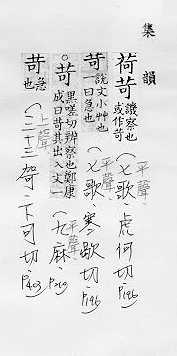 集韻
荷苛 譏察也或作苛 (七歌)平聲 虎何切 P196
苛 說文小艸也一曰急也 (七歌)平聲 寒歌切 P196
苛 黑嗟切辨察也鄭康成曰苛其出入 (九麻)平聲 P209
苛 急也 (上聲)(三十三哿) 下可切 P403